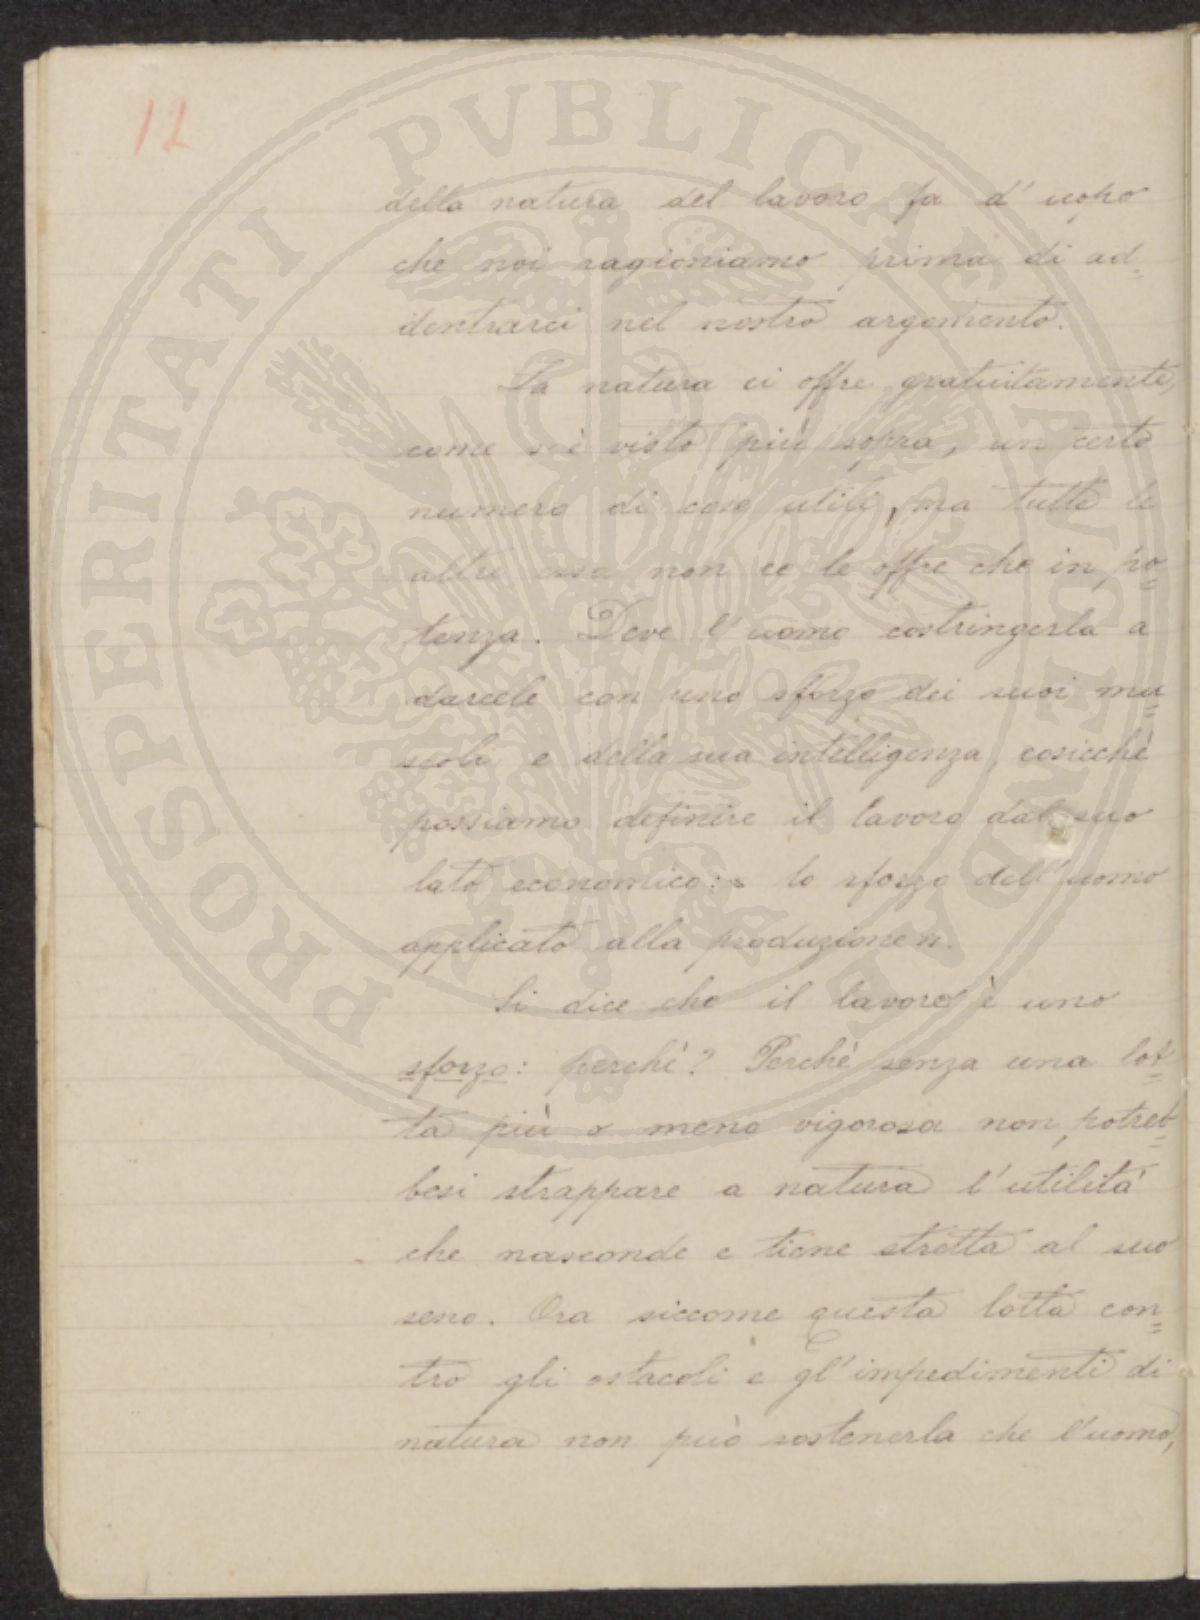 12
della natura del lavoro fa d'uopo
che noi ragioniamo prima di ad=
dentrarci nel nostro argomento.
La natura ci offre gratuitamente,
come s'è visto più sopra, un certo
numero di cose utili, ma tutte le
altre essa non ce le offre che in po=
tenza. Deve l'uomo costringerla a
darcele con uno sforzo dei suoi mu=
scoli e della sua intelligenza, cosicchè
possiamo definire il lavoro dal suo
lato economico: « lo sforzo dell'uomo
applicato alla produzione ».
Si dice che il lavoro è uno
sforzo: perchè? Perchè senza una lot=
ta più o meno vigorosa non potreb=
besi strappare a natura l'utilità
che nasconde e tiene stretta al suo
seno. Ora siccome questa lotta con=
tro gli ostacoli e gl'impedimenti di
natura non può sostenerla che l'uomo,
PROSPERITATI PVBLICAE AVGENDAE